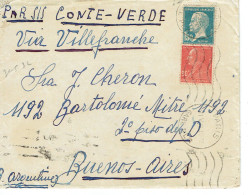 PAR SIS CONTE-VERDE
Via Villefranche
Sra J. Cheron
1192 Bartolome Mitre 1192
2º piso D
Buenos-Aires
R. argentina